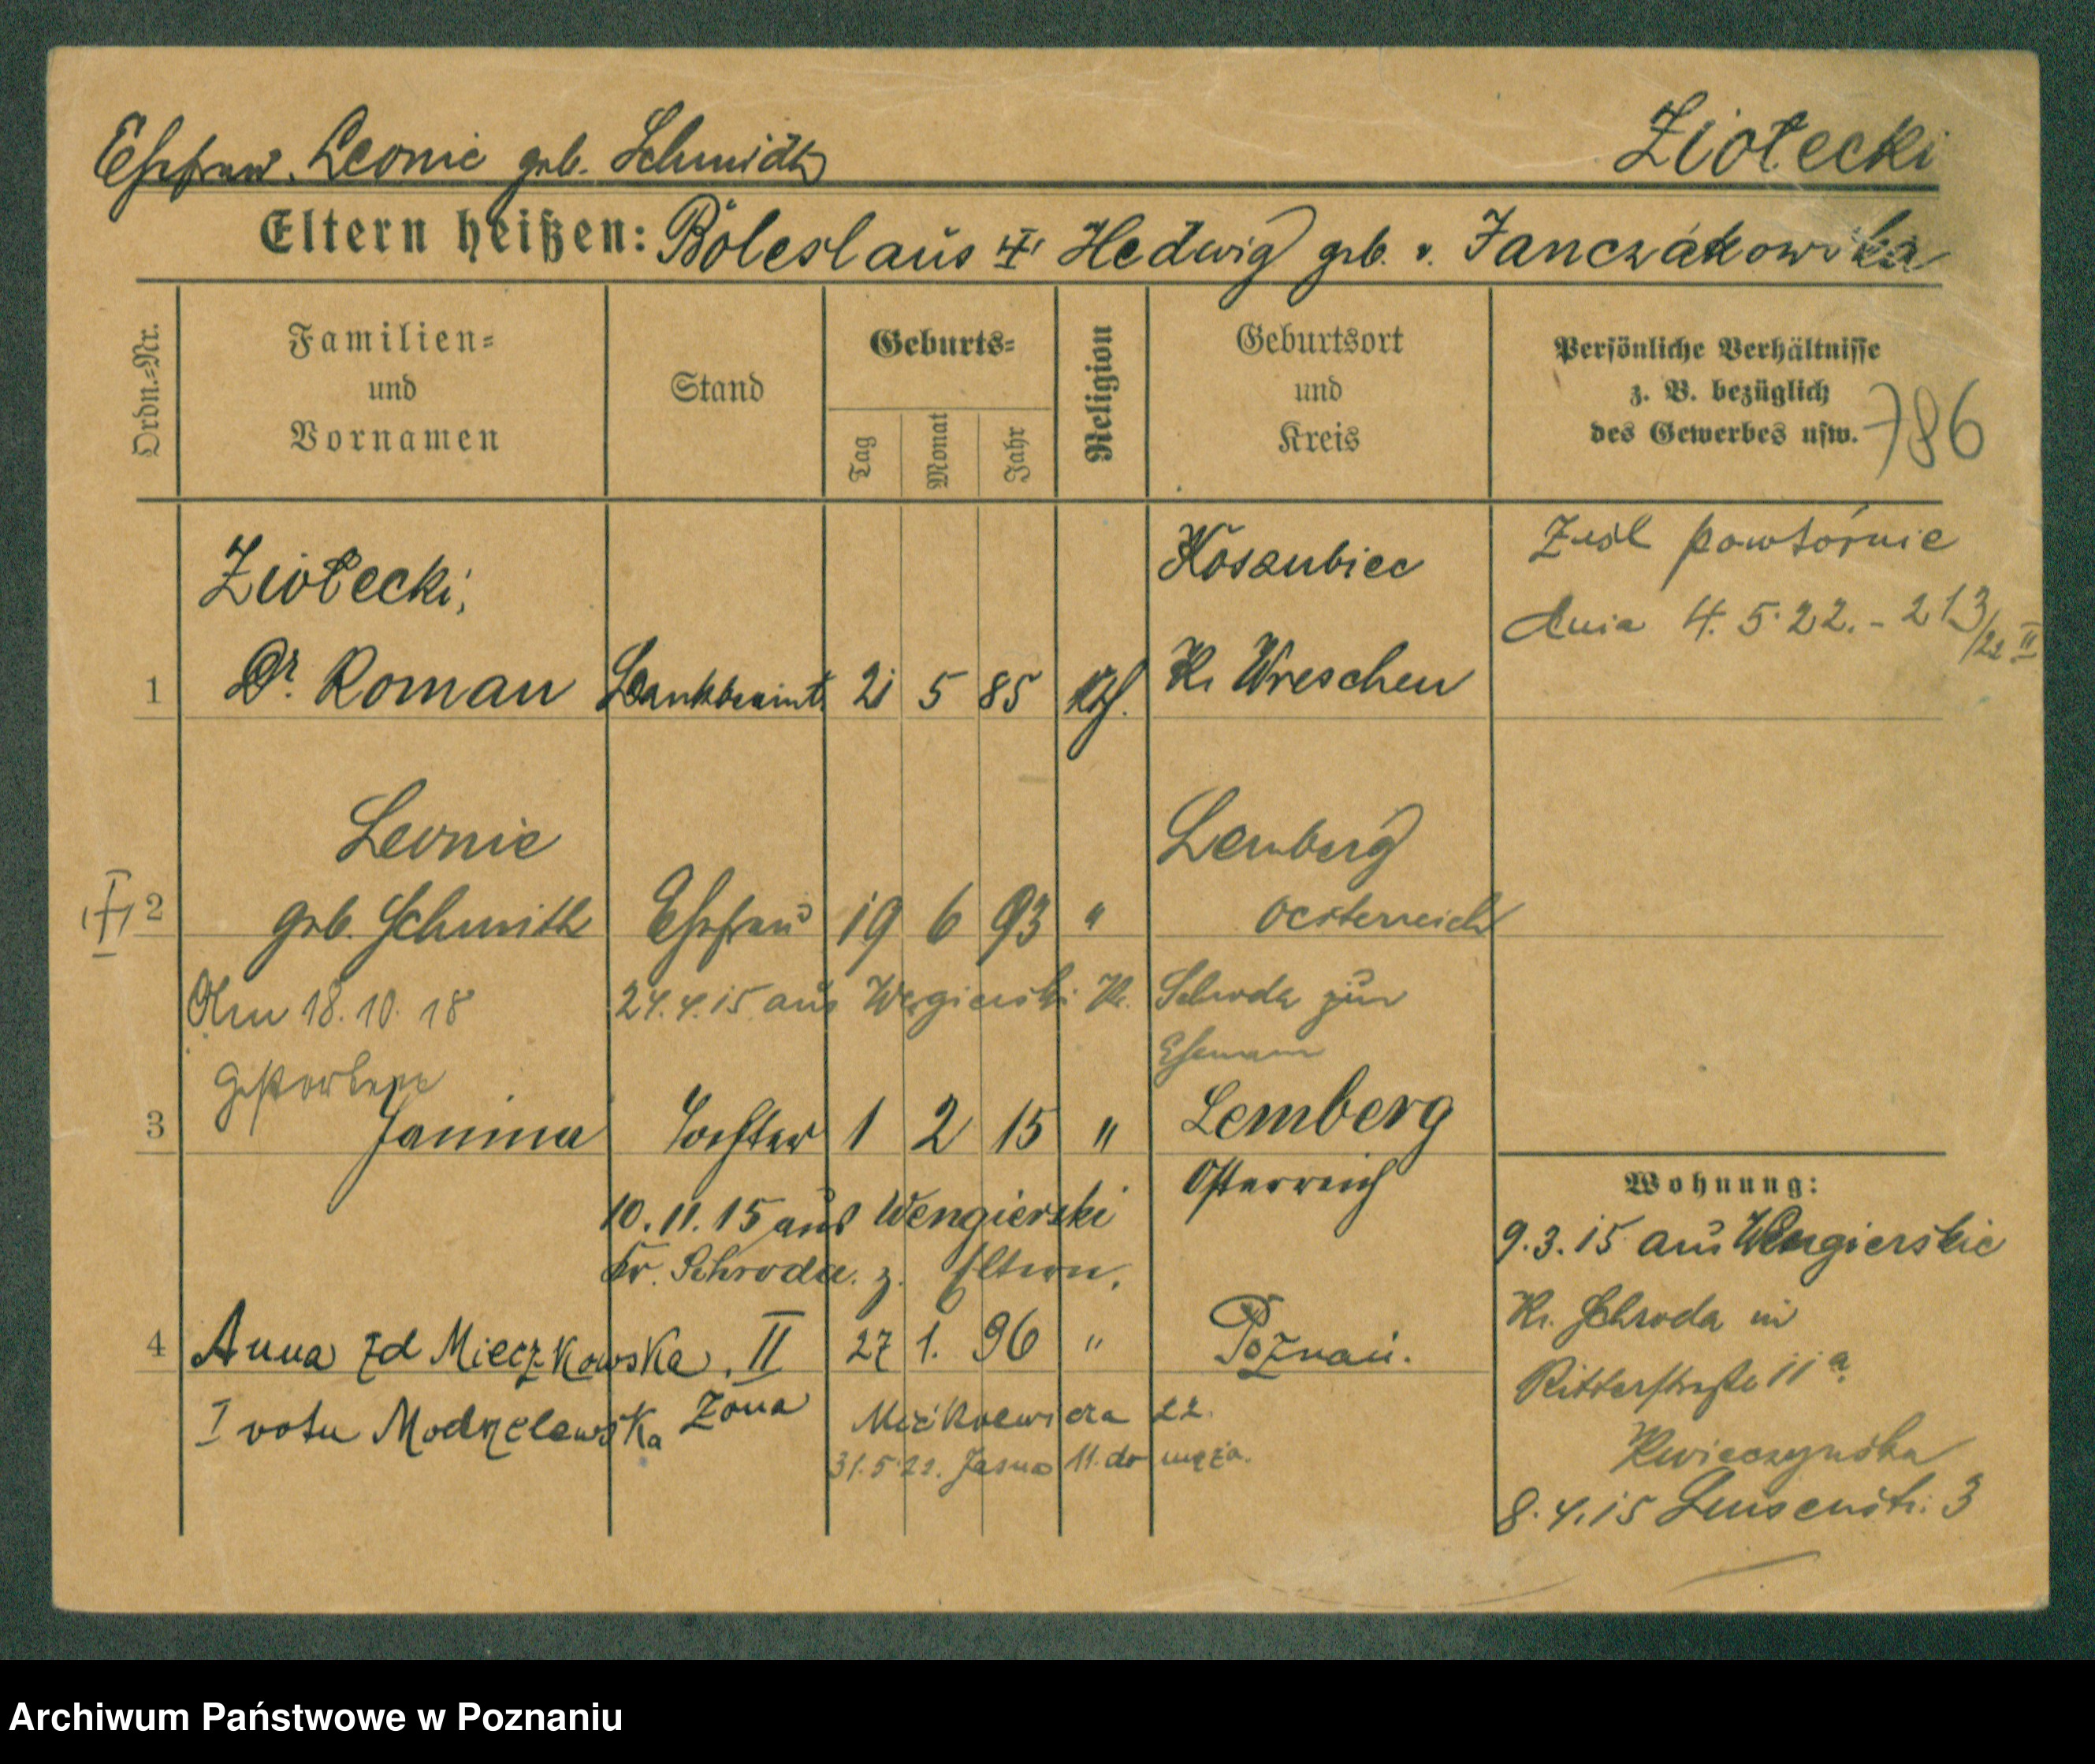 Ehefrau. Leonie geb. Schmidt
Ziołecki
Eltern heißen: Boleslaus Hedwig geb. v. Janczakowska
Ordn.-Nr.
Familien-
und
Vornamen
Stand
Geburts-
Tag
Monat
Jahr
Religion
Geburtsort
und
Kreis
Persönliche Verhältnisse
z. B. bezüglich
des Gewerbes usw.
786
Ziołecki,
Koszubiec
1 Dr. Roman Bankbeamt. 21 5 85 kth. Kr Wreschen
powtórnie
dnia 4. 5. 22. - 213/22 II
Leonie Lemberg
2 geb. Schmith Ehefrau 19 6 93 " Oesterreich
Am 18. 10. 18
gestorben
24. 4. 15 aus Wegierski Kr. Schroda zum
Ehemann
3 Janina Tochter 1 2 15 " Lemberg
Österreich
10. 11. 15 aus Wengierski
Kr. Schroda z. Eltern.
4 Anna zd Mieczkowska, II 27 1. 96 " Poznań.
I votu Modzelewska żona
Mickiewicza 22.
31. 5 22. Jasna 11. do męża.
Wohnung:
9. 3. 15 aus Wengierskie
Kr. Schroda in
Ritterstraße 11a.
Kwieczynska
8. 4. 15 Luisenstr. 3
Archiwum Państwowe w Poznaniu